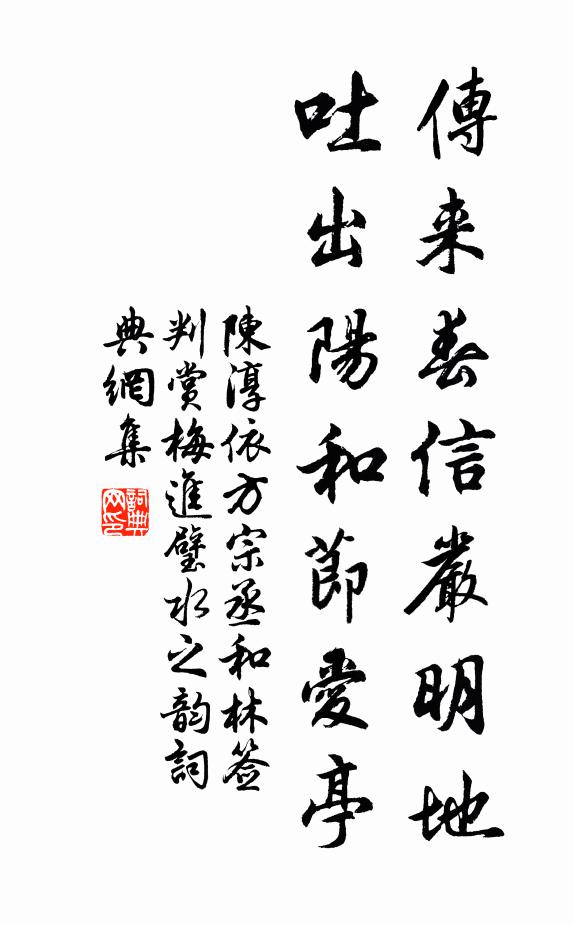 傳来春信嚴明地
吐出陽和節愛亭
陳淳依方宗丞和林签
判賞梅進璧水之韵詞
典網集
詞典網印